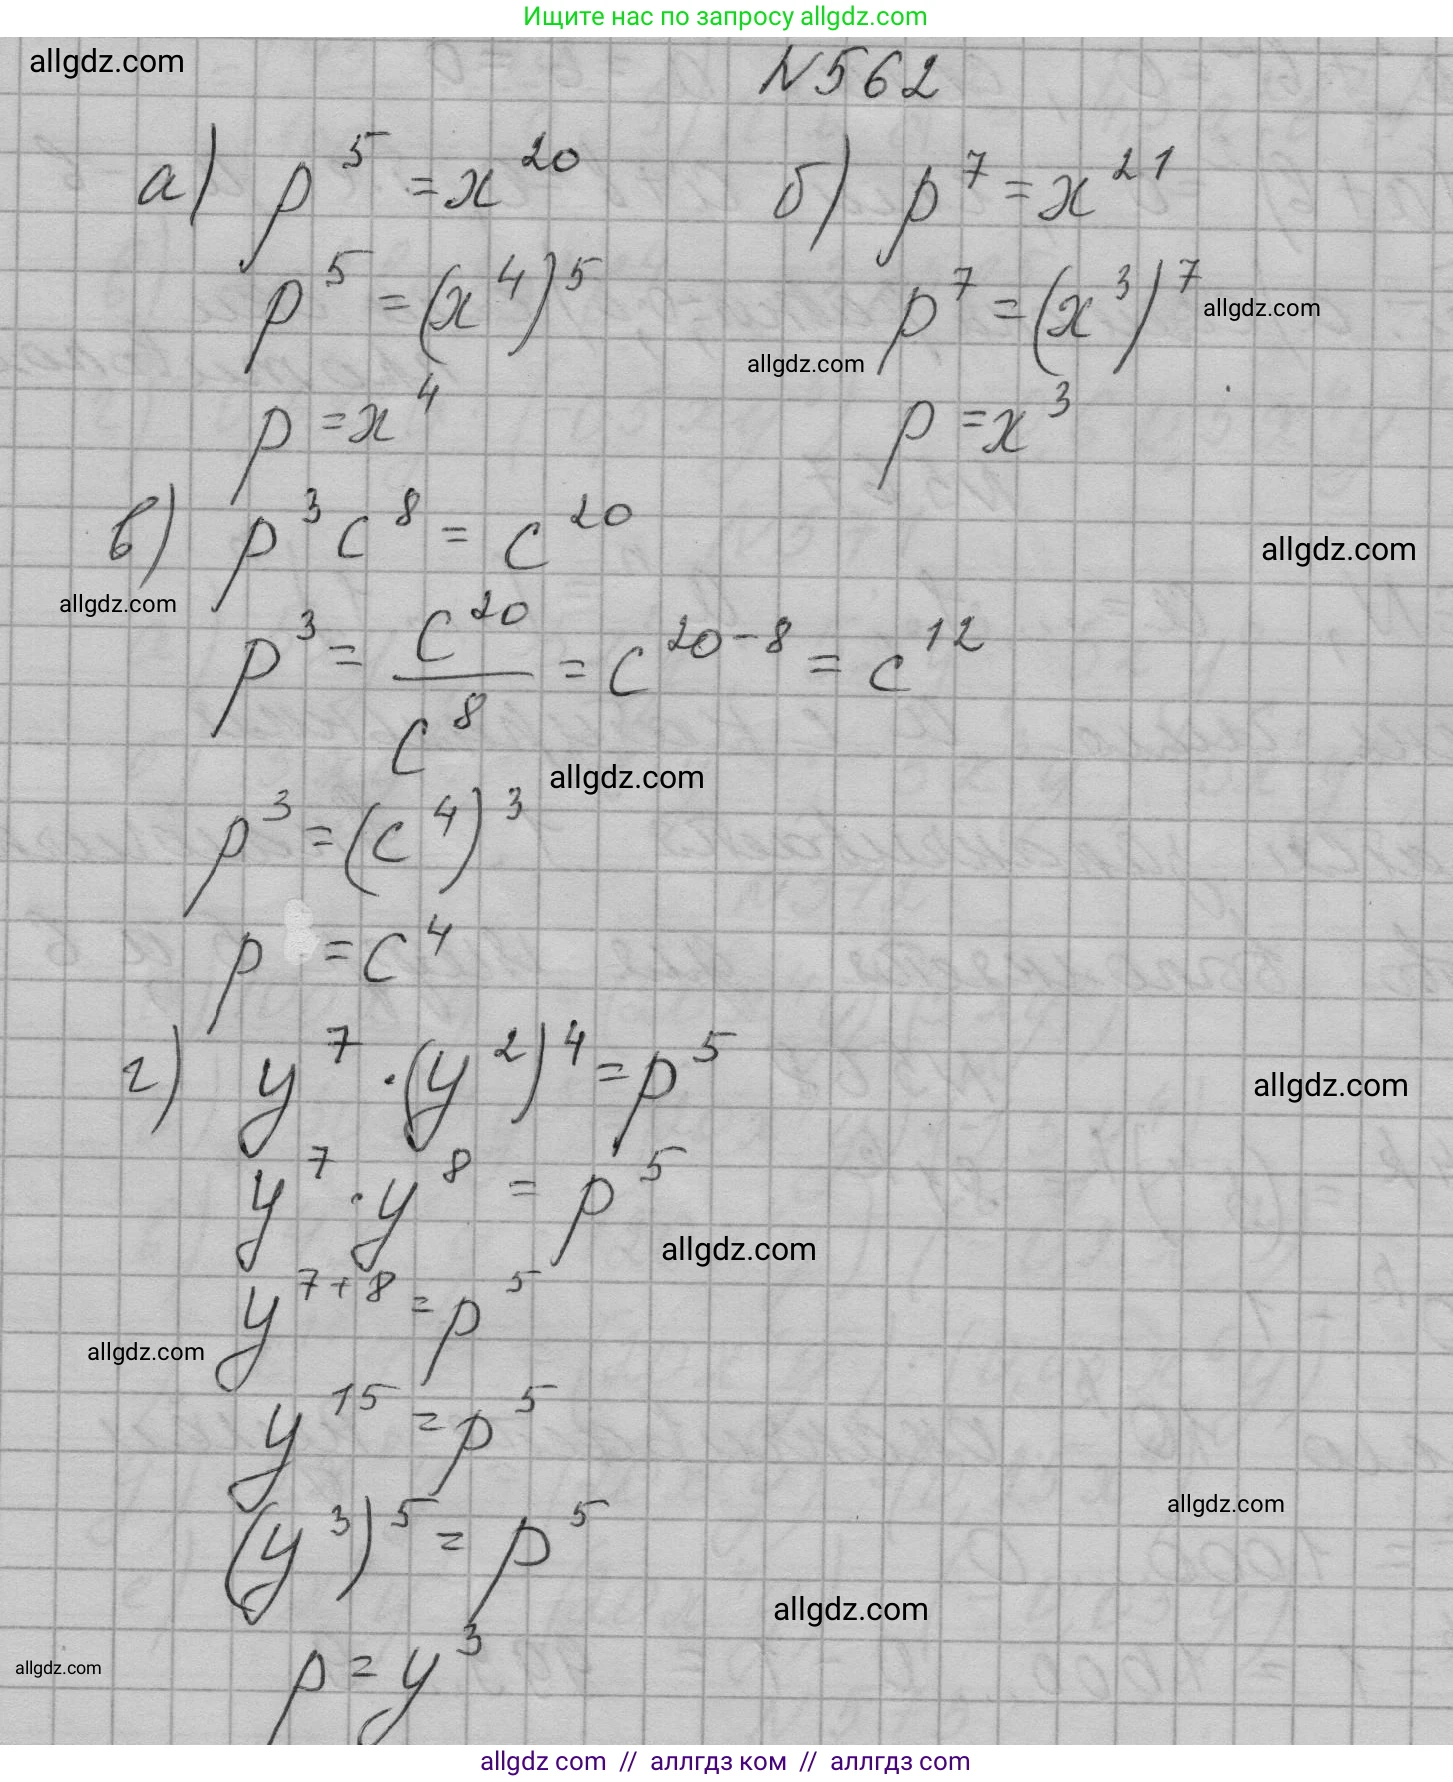 Ищите нас по запросу allgdz.com
allgdz.com
N562
а) p^5 = x^20
p^5 = (x^4)^5
p = x^4
б) p^7 = x^21
p^7 = (x^3)^7
allgdz.com
allgdz.com
p = x^3
в) p^3 c^8 = c^20
allgdz.com
allgdz.com
p^3 = c^20/c^8 = c^20-8 = c^12
allgdz.com
p^3 = (c^4)^3
p = c^4
г) y^7 · (y^2)^4 = p^5
allgdz.com
y^7 · y^8 = p^5
allgdz.com
y^7+8 = p^5
allgdz.com
y^15 = p^5
allgdz.com
(y^3)^5 = p^5
allgdz.com
p = y^3
allgdz.com
allgdz com // аллгдз ком // аллгдз com